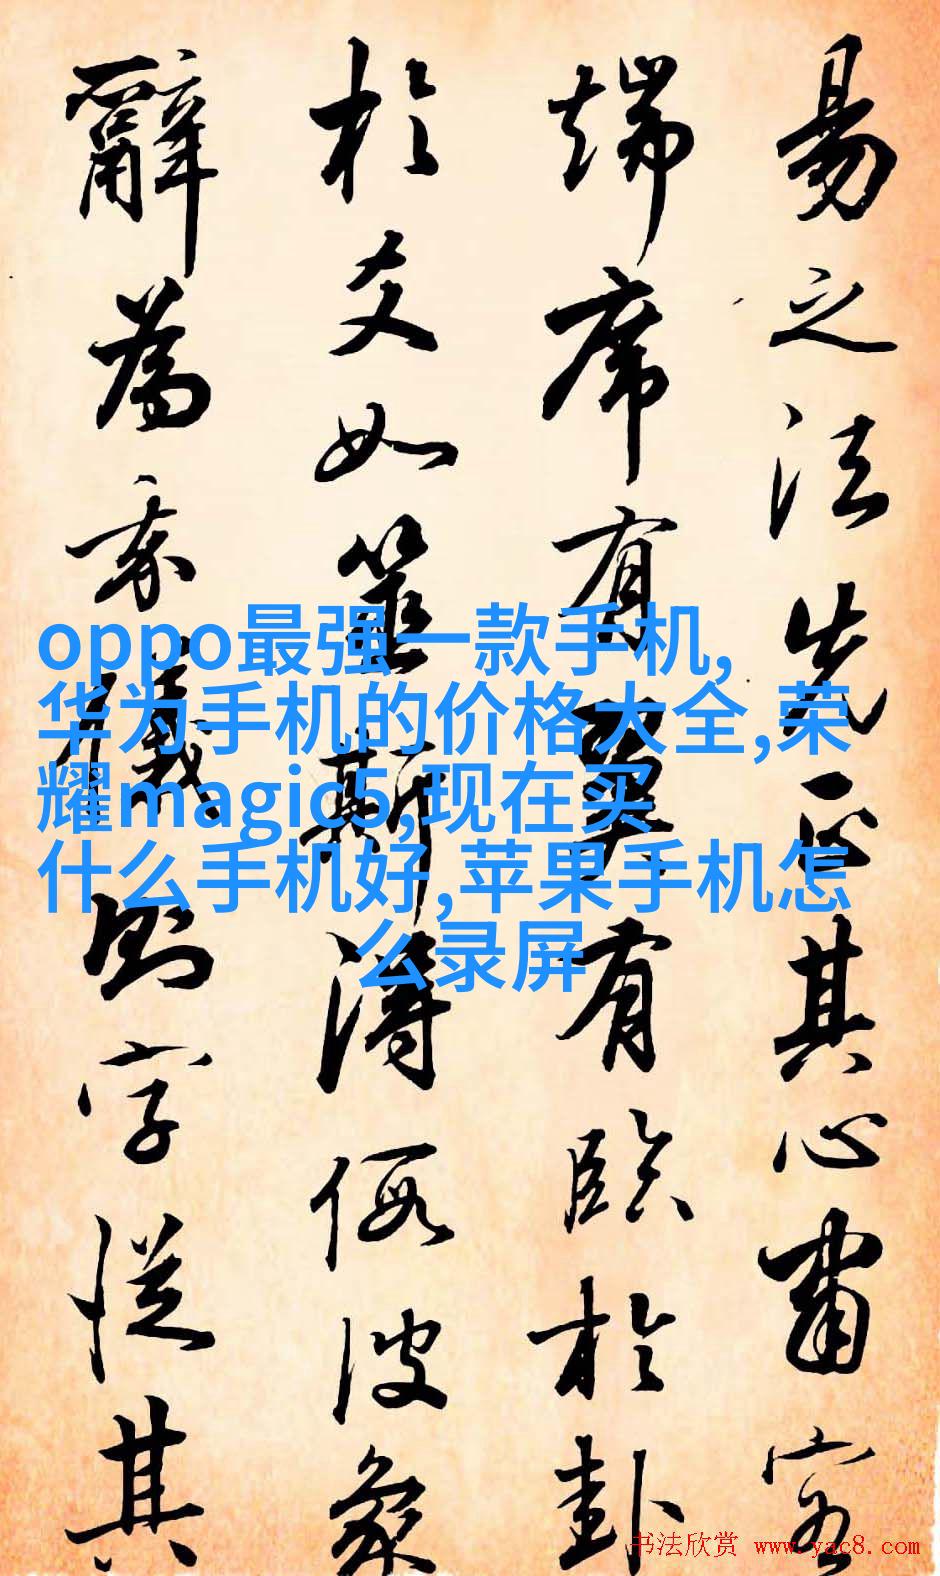 易之法先正其心肅容
端席有翼有臨於卦
於爻如筮斯得假彼象
辭為奏儀則字從其
oppo最强一款手机,
华为手机的价格大全,荣
耀magic5,现在买
什么手机好,苹果手机怎
么录屏
书法欣赏 www.yac8.com